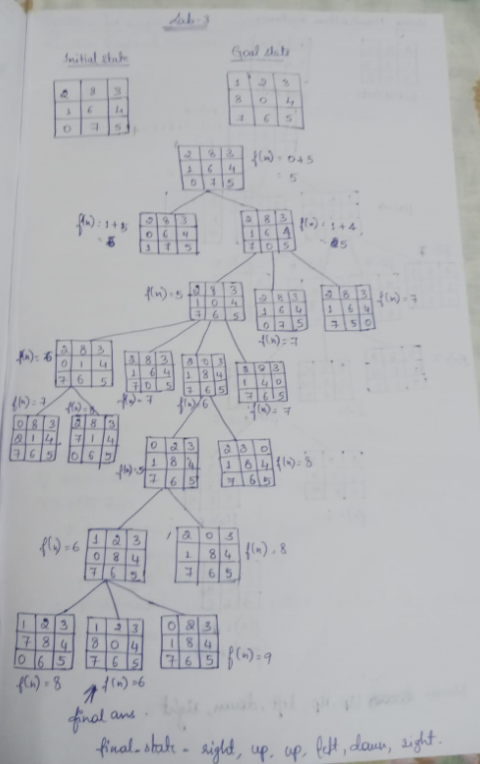 Lab-3
Initial state
Goal state
2 8 3
1 6 4
0 7 5
1 2 3
8 0 4
7 6 5
2 8 3
1 6 4
0 7 5
f(n) = 0+5
= 5
f(n) = 1+5
= 6
2 8 3
0 6 4
1 7 5
2 8 3
1 6 4
7 0 5
f(n) = 1+4
= 5
f(n) = 5
2 8 3
1 0 4
7 6 5
2 8 3
1 6 4
0 7 5
f(n) = 7
2 8 3
1 6 4
7 5 0
f(n) = 7
f(n) = 6
2 8 3
0 1 4
7 6 5
2 8 3
1 6 4
7 0 5
f(n) = 7
2 0 3
1 8 4
7 6 5
f(n) = 6
2 8 3
1 4 0
7 6 5
f(n) = 7
f(n) = 7
0 8 3
2 1 4
7 6 5
f(n) = 8
2 8 3
7 1 4
0 6 5
f(n) =
0 2 3
1 8 4
7 6 5
2 3 0
1 8 4
7 6 5
f(n) = 8
f(n) = 6
1 2 3
0 8 4
7 6 5
2 0 3
1 8 4
7 6 5
f(n) = 8
1 2 3
7 8 4
0 6 5
f(n) = 8
1 2 3
8 0 4
7 6 5
f(n) = 6
0 2 3
1 8 4
7 6 5
f(n) = 9
final ans.
final-state - right, up, up, left, down, right.